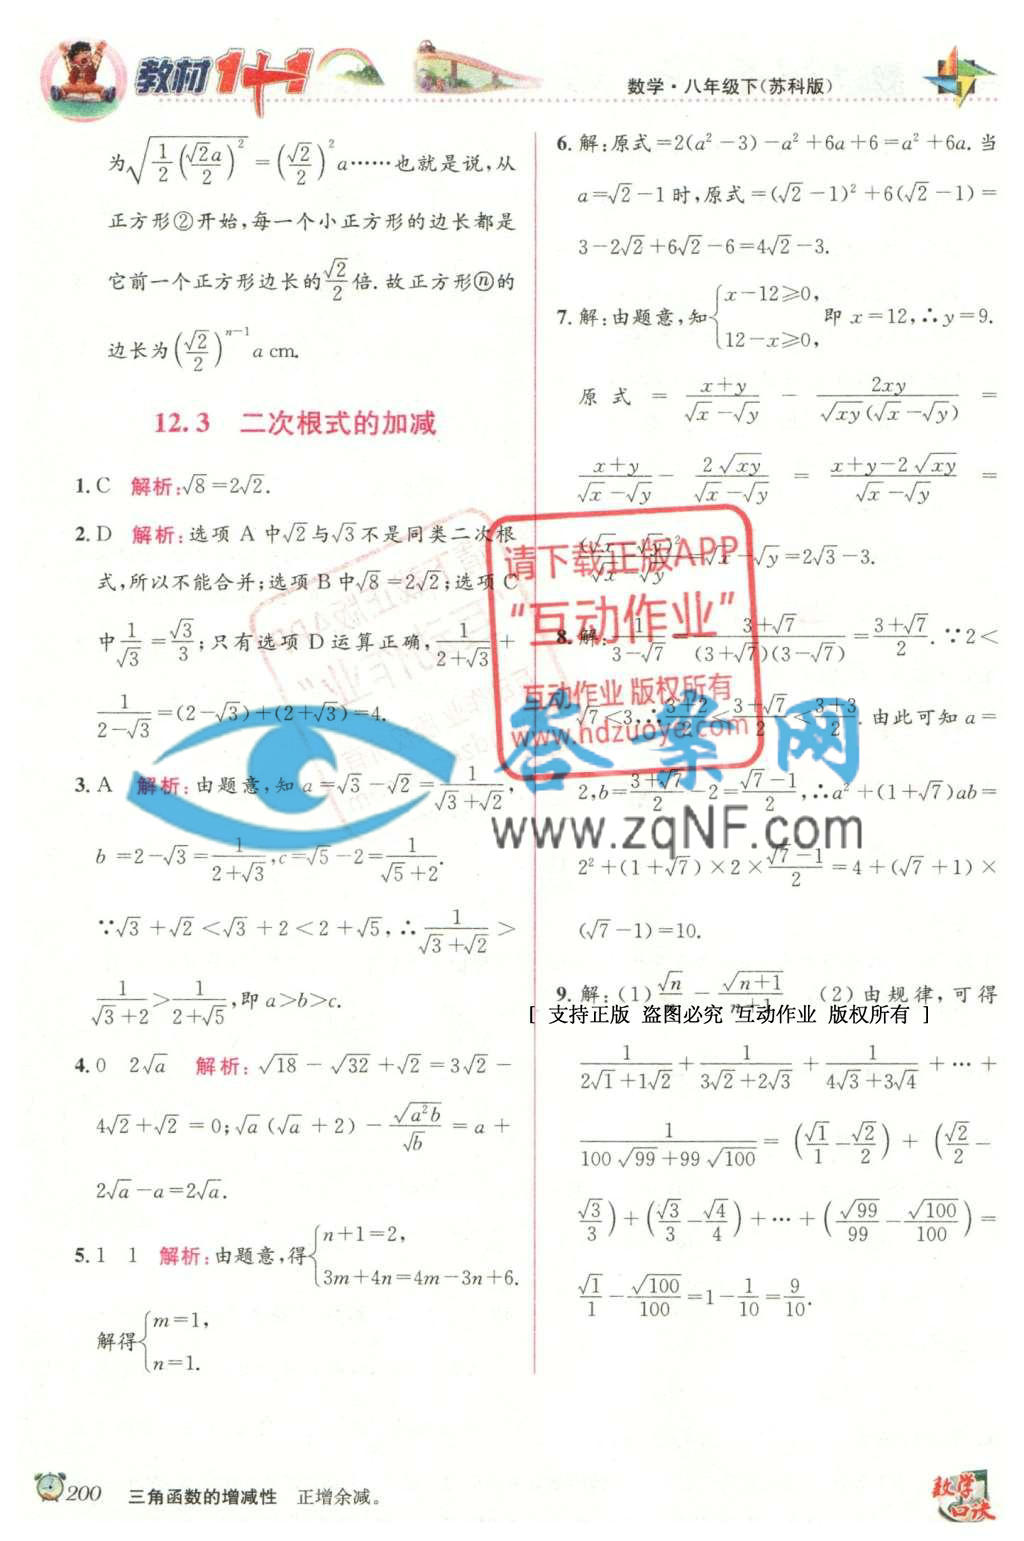 教材1+1
数学·八年级下(苏科版)
为√(1/2(√2a/2)²)=(√2/2)²a……也就是说,从
正方形②开始,每一个小正方形的边长都是
它前一个正方形边长的√2/2倍.故正方形ⓝ的
边长为(√2/2)ⁿ⁻¹a cm.
12.3 二次根式的加减
1.C 解析:√8=2√2.
2.D 解析:选项 A 中√2与√3不是同类二次根
式,所以不能合并;选项 B 中√8=2√2;选项 C
中1/√3=√3/3;只有选项 D 运算正确,1/(2+√3)+
1/(2-√3)=(2-√3)+(2+√3)=4.
3.A 解析:由题意,知 a=√3-√2=1/(√3+√2),
b=2-√3=1/(2+√3),c=√5-2=1/(√5+2).
∵√3+√2<√3+2<2+√5,∴1/(√3+√2)>
1/(√3+2)>1/(2+√5),即 a>b>c.
4.0 2√a 解析:√18-√32+√2=3√2-
4√2+√2=0;√a(√a+2)-√(a²b)/√b=a+
2√a-a=2√a.
5.1 1 解析:由题意,得{n+1=2,
3m+4n=4m-3n+6.
解得{m=1,
n=1.
6.解:原式=2(a²-3)-a²+6a+6=a²+6a.当
a=√2-1时,原式=(√2-1)²+6(√2-1)=
3-2√2+6√2-6=4√2-3.
7.解:由题意,知{x-12≥0,
12-x≥0,
即 x=12,∴y=9.
原式=(x+y)/(√x-√y)-2xy/(√xy(√x-√y))=
(x+y)/(√x-√y)-2√xy/(√x-√y)=(x+y-2√xy)/(√x-√y)=
(√x-√y)²/(√x-√y)=√x-√y=2√3-3.
8.解:1/(3-√7)=(3+√7)/((3+√7)(3-√7))=(3+√7)/2.∵2<
√7<3,∴(3+2)/2<(3+√7)/2<(3+3)/2.由此可知 a=
2,b=(3+√7)/2-2=(√7-1)/2,∴a²+(1+√7)ab=
2²+(1+√7)×2×(√7-1)/2=4+(√7+1)×
(√7-1)=10.
9.解:(1)√n/n-√(n+1)/(n+1) (2)由规律,可得
1/(2√1+1√2)+1/(3√2+2√3)+1/(4√3+3√4)+…+
1/(100√99+99√100)=(√1/1-√2/2)+(√2/2-
√3/3)+(√3/3-√4/4)+…+(√99/99-√100/100)=
√1/1-√100/100=1-1/10=9/10.
请下载正版APP
“互动作业”
互动作业 版权所有
www.hdzuoye.com
答案网
www.zqNF.com
[ 支持正版 盗图必究 互动作业 版权所有 ]
200 三角函数的增减性 正增余减。
数学
口诀